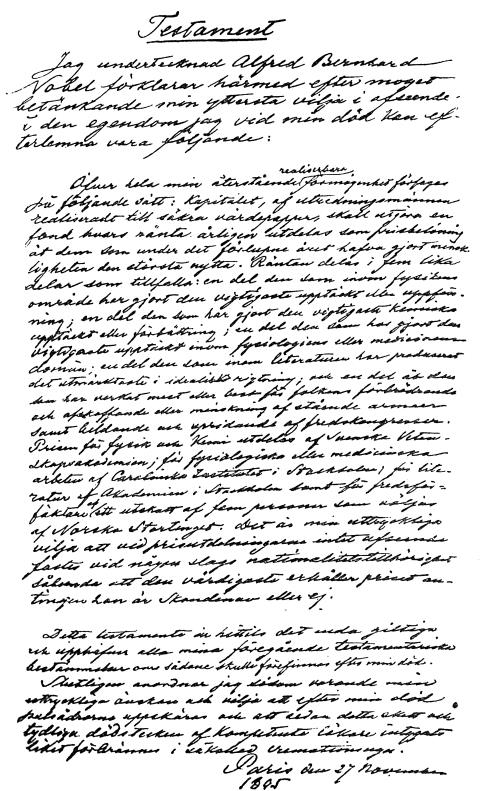 Testament
Jag undertecknad Alfred Bernhard
Nobel förklarar härmed efter moget
betänkande min yttersta vilja i afseende
å den egendom jag vid min död kan ef-
terlemna vara följande:
realiserbara
Öfver hela min återstående förmögenhet förfoges
på följande sätt: Kapitalet, af utredningsmännen
realiseradt till säkra värdepapper, skall utgöra en
fond hvars ränta årligen utdelas som prisbelöning
åt dem som under det förlupne året hafva gjort mensk-
ligheten den största nytta. Räntan delas i fem lika
delar som tillfalla: en del den som inom fysikens
område har gjort den vigtigaste upptäckt eller uppfin-
ning; en del den som har gjort den vigtigaste kemiska
upptäckt eller förbättring; en del den som har gjort den
vigtigaste upptäckt inom fysiologiens eller medicinens
domän; en del den som inom literaturen har producerat
det utmärktaste i idealisk rigtning; och en del åt den
som har verkat mest eller best för folkens förbrödrande
och afskaffande eller minskning af stående armeer
samt bildande och spridande af fredskongresser.
Prisen för fysik och kemi utdelas af Svenska Veten-
skapsakademien; för fysiologiska eller medicinska
arbeten af Carolinska Institutet i Stockholm; för lite-
ratur af Akademien i Stockholm samt för fredsför-
fäktare af ett utskott af fem personer som väljas
af Norska Stortinget. Det är min uttryckliga
vilja att vid prisutdelningarne intet afseende
fästes vid någon slags nationalitetstillhörighet
sålunda att den värdigaste erhåller priset an-
tingen han är Skandinav eller ej.
Detta testamente är hittills det enda giltiga
och upphäfver alla mina föregående testamentariska
bestämmelser om sådane skulle förefinnas efter min död.
Slutligen anordnar jag såsom varande min
uttryckliga önskan och vilja att efter min död
pulsådrorna uppskäras och att sedan detta skett och
tydliga dödstecken af kompetenta läkare intygats
liket förbrännes i såkallad cremationsugn.
Paris den 27 November
1895